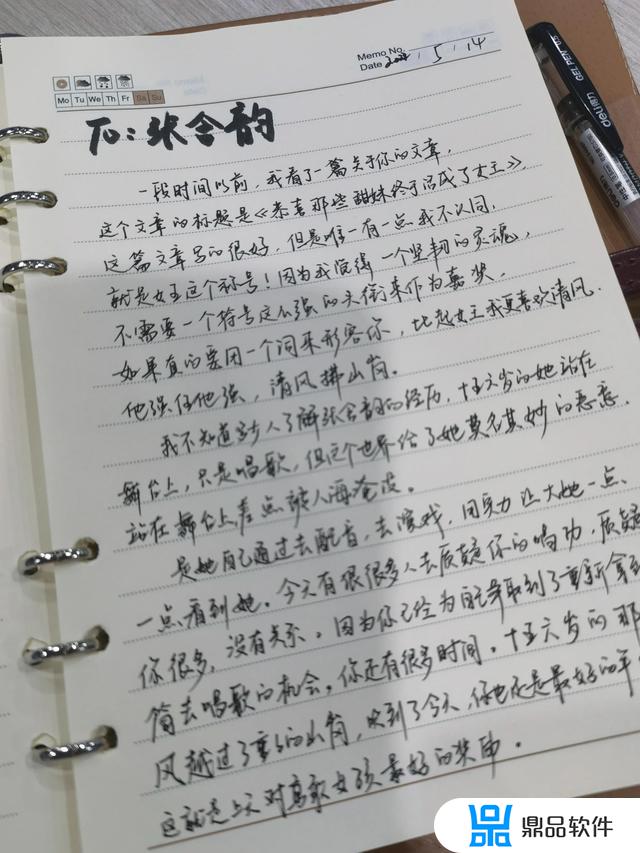 Memo No.
Date 2021 / 5 / 14
Mo Tu We Th Fr Sa Su
To：张含韵
一段时间以前，我看了一篇关于你的文章，
这个文章的标题是《恭喜那些甜妹终于活成了女王》，
这篇文章写的很好，但是唯一有一点我不认同，
就是女王这个称号！因为我觉得一个坚韧的灵魂，
不需要一个符号这么强的头衔来作为嘉奖，
如果真的要用一个词来形容你，比起女王我更喜欢清风．
他强任他强，清风拂山岗。
我不知道多少人了解张含韵的经历，十五六岁的她站在
舞台上，只是唱歌，但这个世界给了她莫名其妙的恶意．
站在舞台上差点被人海淹没。
是她自己通过去配音，去演戏，用实力让大她一点、
一点看到她。今天有很很多人去质疑你的唱功，质疑
你很多，没有关系。因为你已经为自己争取到了重新拿到
简去唱歌的机会，你还有很多时间。十五六岁的那
风越过了重重的山岗，吹到了今天，你也还是最好的年
这就是上天对喜歌女孩最好的奖励。
deli得力
GEL PEN
鼎品软件